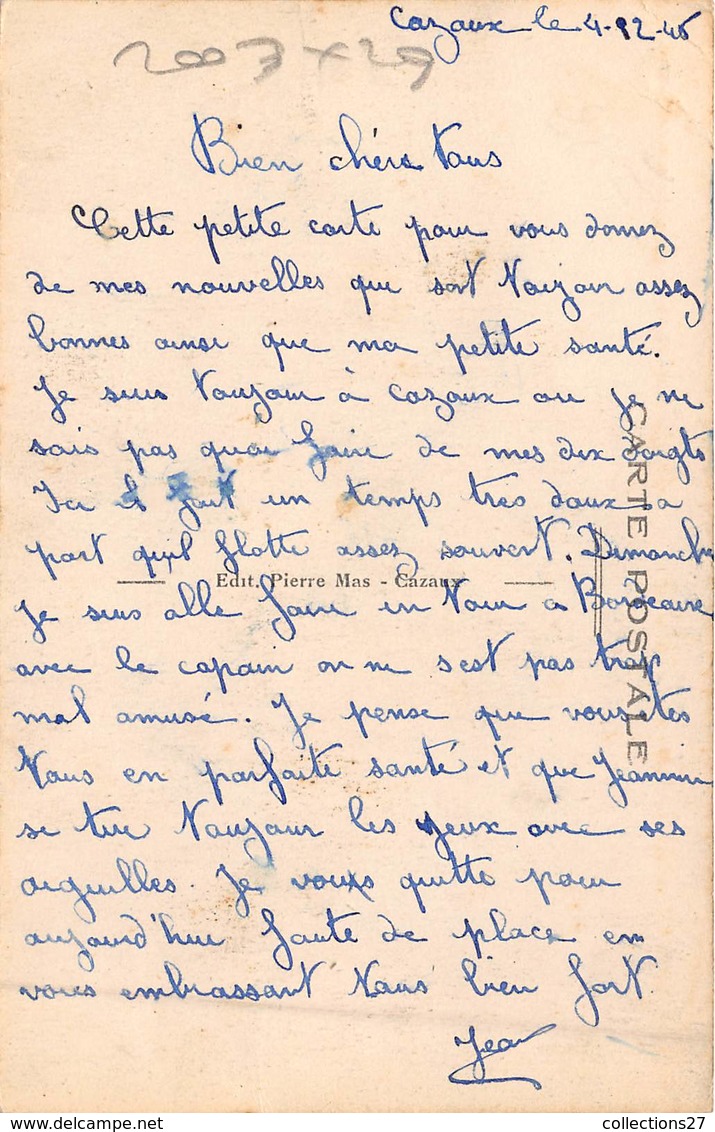 Cazaux le 4-12-46
2007 x 29
Bien chers Tous
Cette petite carte pour vous donnez
de mes nouvelles qui sont Toujour assez
bonnes ainsi que ma petite santé.
Je suis Toujour à Cazaux ou je ne
sais pas quoi faire de mes dix doigts
Ici il fait un temps tres doux a
part qu'il flotte assez souvent. Dimanche
Edit. Pierre Mas - Cazaux
CARTE POSTALE
je suis alle faire un Tour a Bordeaux
avec le copain on ne s'est pas trop
mal amusé. Je pense que vous etes
Tous en parfaite santé et que Jeannine
se tire Toujour les yeux avec ses
aiguilles. Je vous quitte pour
aujourd'hui faute de place en
vous embrassant Tous bien fort.
Jean
collections27